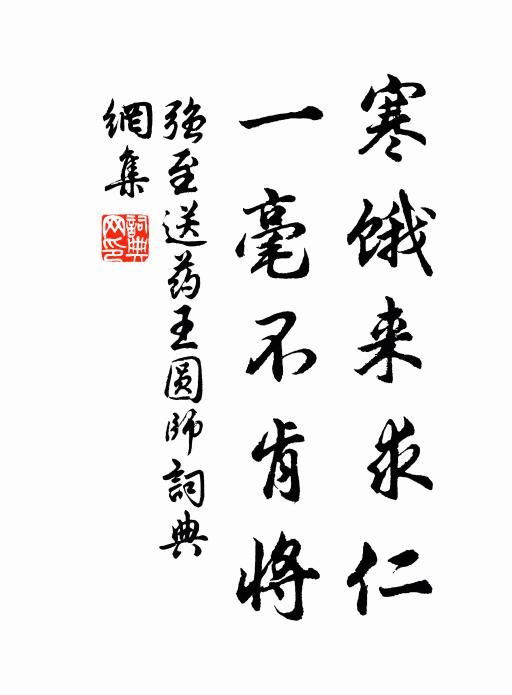 寒饿来求仁
一毫不肯将
強至送药王圆師詞典
網集
詞典网印